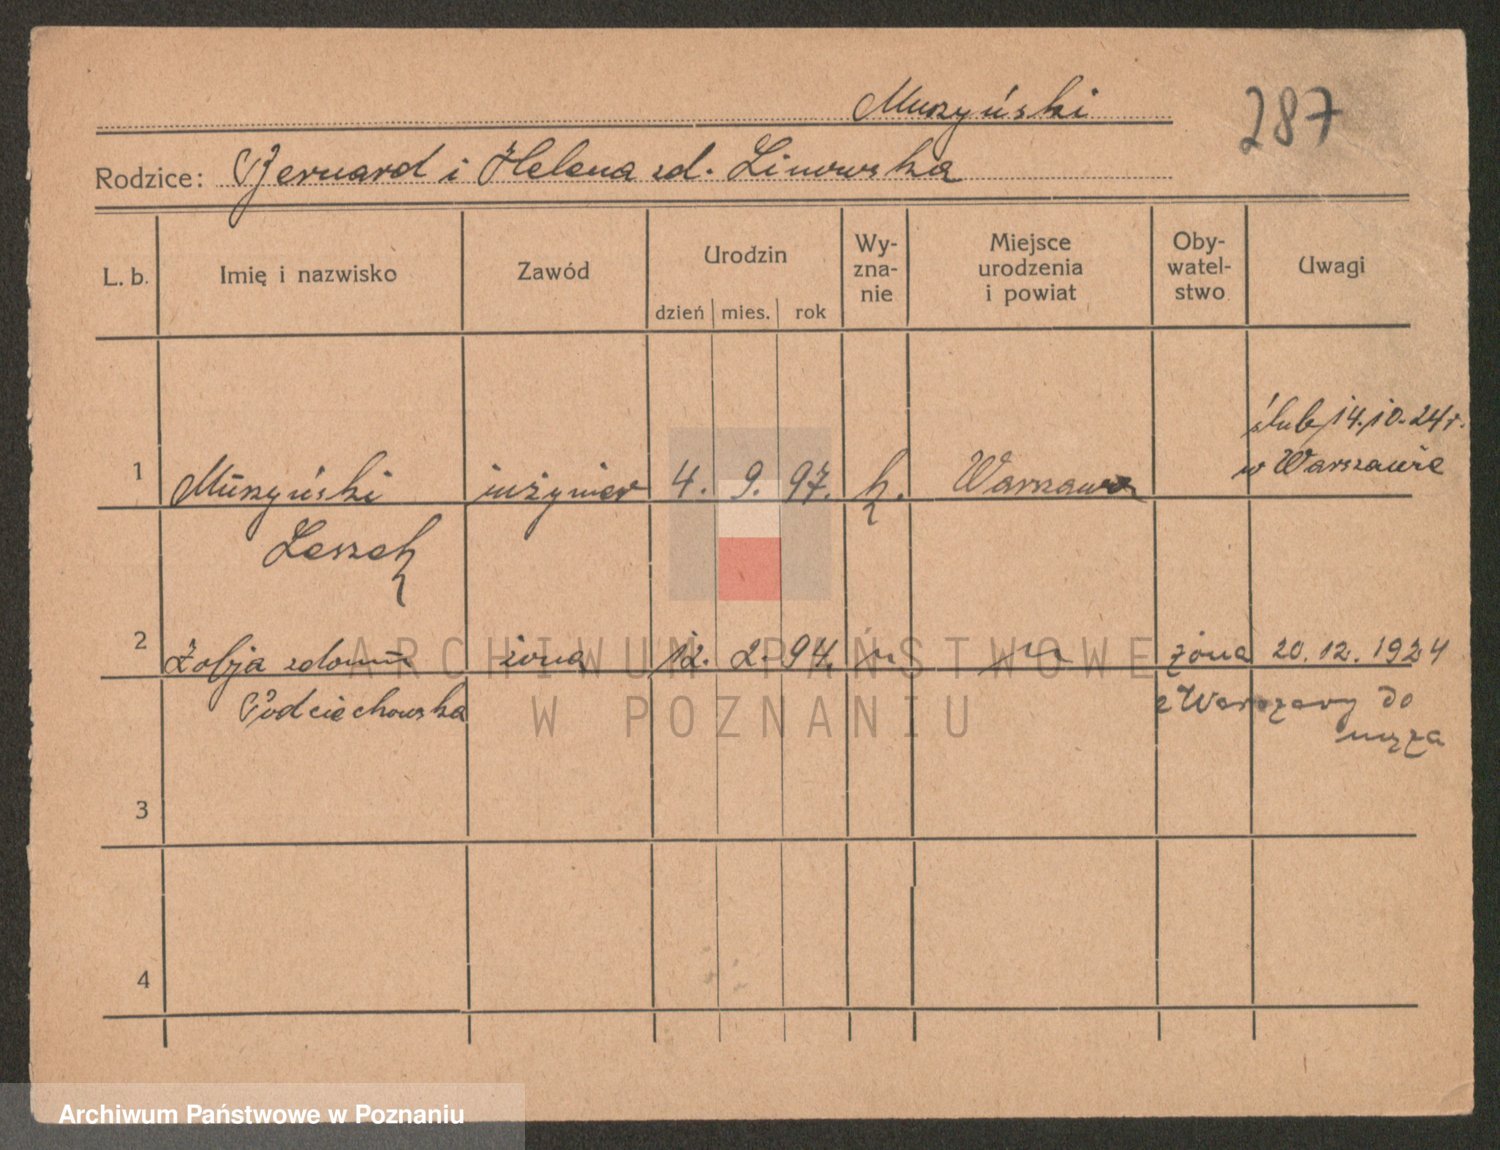 Muszyński
287
Rodzice: Bernard i Helena zd. Linowska
L. b. Imię i nazwisko Zawód Urodzin Wy-zna-nie Miejsce urodzenia i powiat Oby-watel-stwo Uwagi
dzień mies. rok
ślub 14.10.24 r.
w Warszawie
1 Muszyński inżynier 4. 9. 97. k. Warszawa
Leszek
2 Zofja zdomu żona 12. 2. 94. " " żona 20. 12. 1924
Podciechowska z Warszawy do
męża
3
4
ARCHIWUM PAŃSTWOWE
W POZNANIU
Archiwum Państwowe w Poznaniu